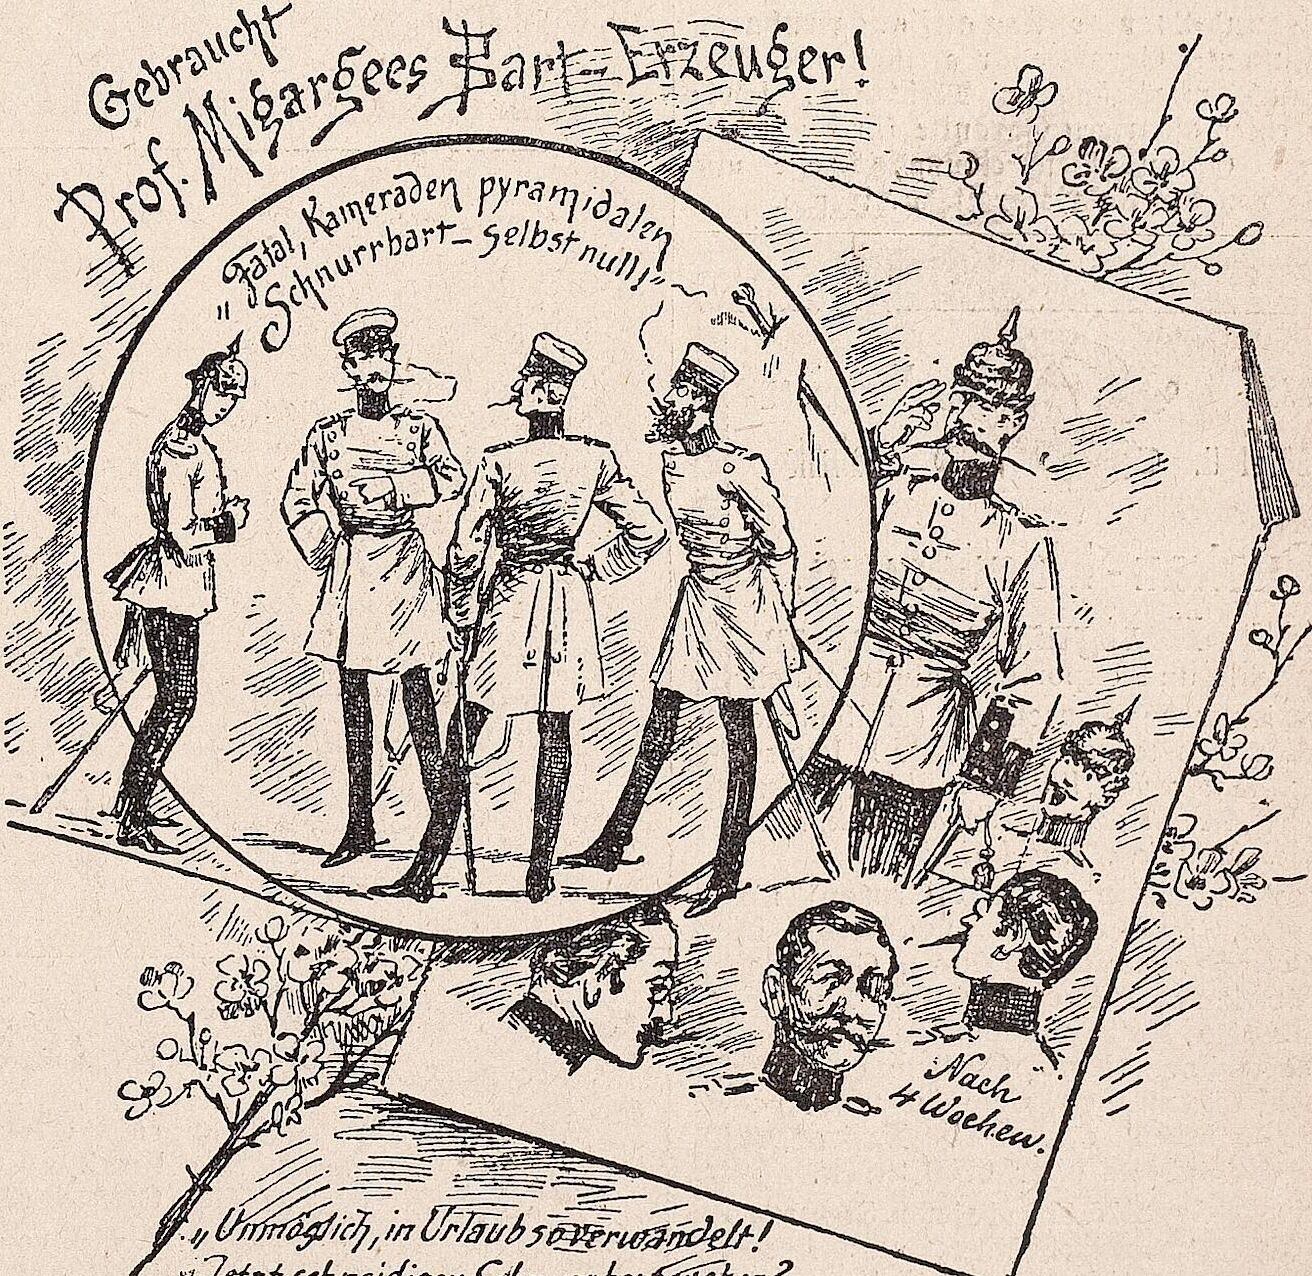 Gebraucht
Prof. Migargees Bart-Erzeuger!
„Fatal, Kameraden pyramidalen
Schnurrbart – selbst null!"
Nach
4 Wochen.
„Unmöglich, in Urlaub so verwandelt!